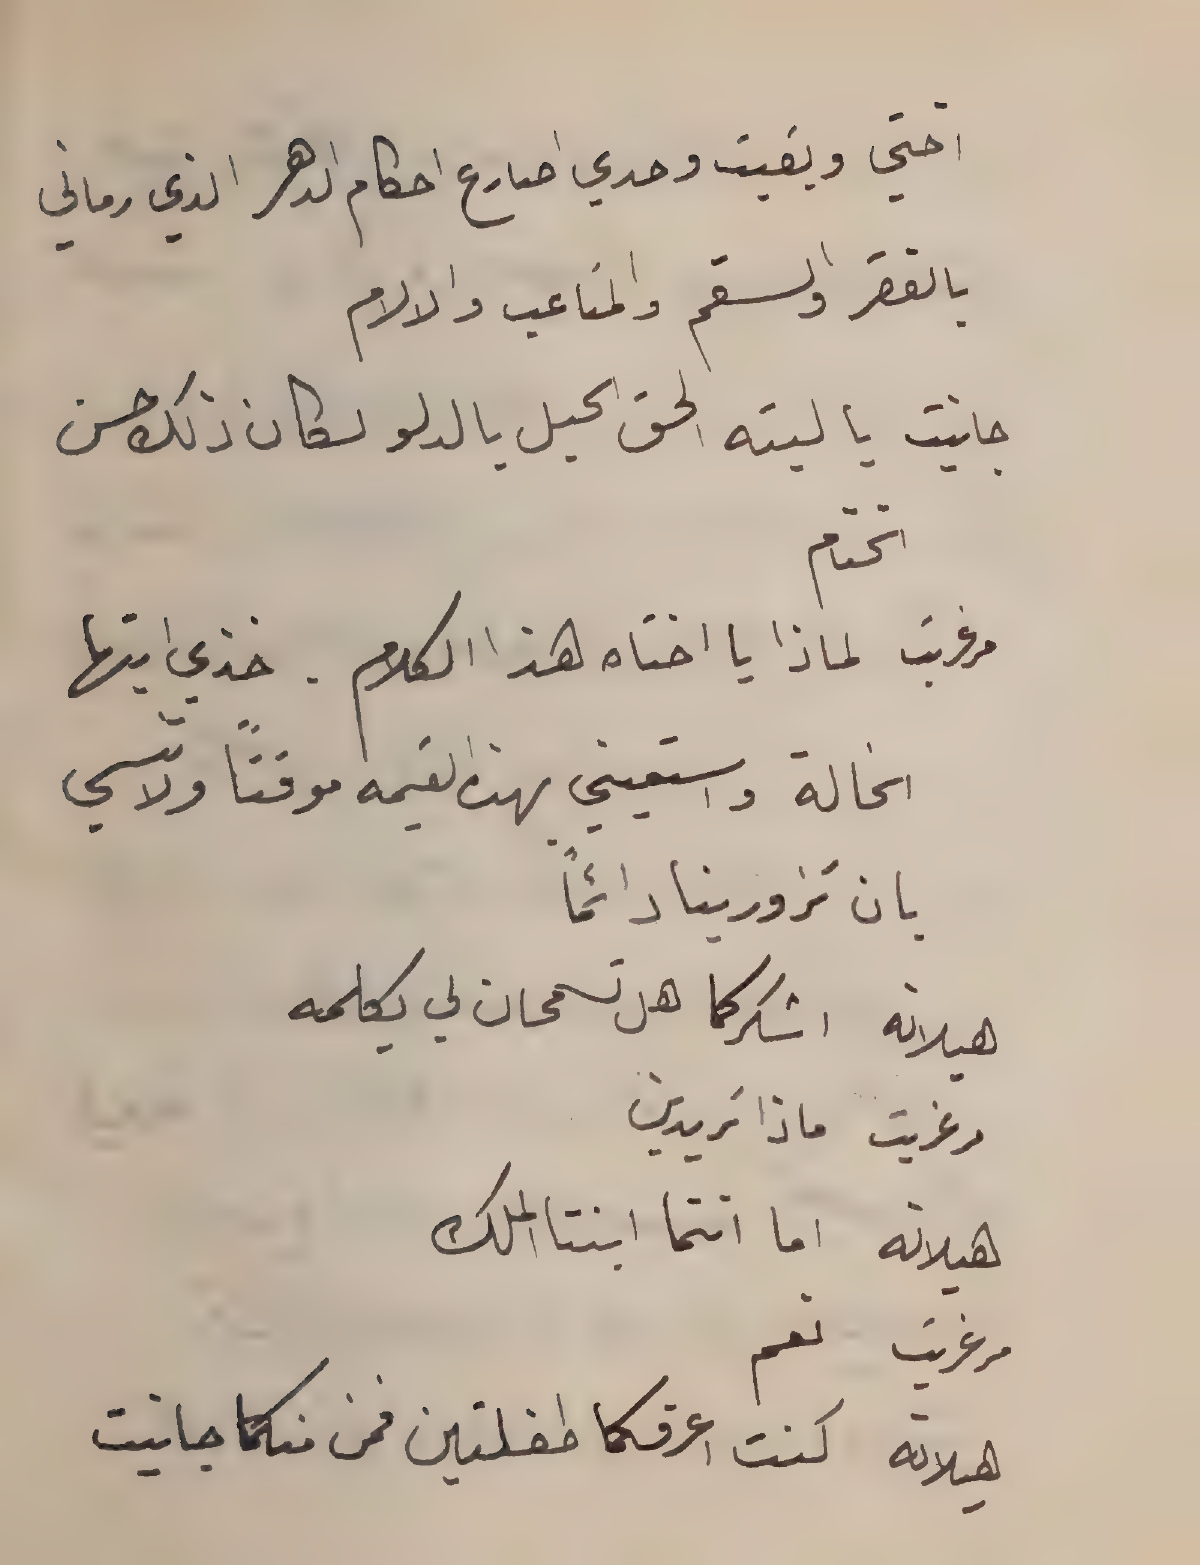 اختي وبقيت وحدي اصارع احكام الدهر الذي رماني
بالفقر والسقم والمتاعب والالام
جانيت يا ليته الحق الحبل بالدلو لكان ذلك حسن
الختام
مرغريت لماذا يا اختاه هذا الكلام . خذي ايتها
الخالة واستعيني بهذه القيمه موقتاً ولا تنسي
بان تزورينا دائماً
هيلانه اشكركما هل تسمحان لي بكلمه
مرغريت ماذا تريدين
هيلانه اما انتما ابنتا الملك
مرغريت نعم
هيلانه كنت اعرفكما طفلتين فمن منكما جانيت